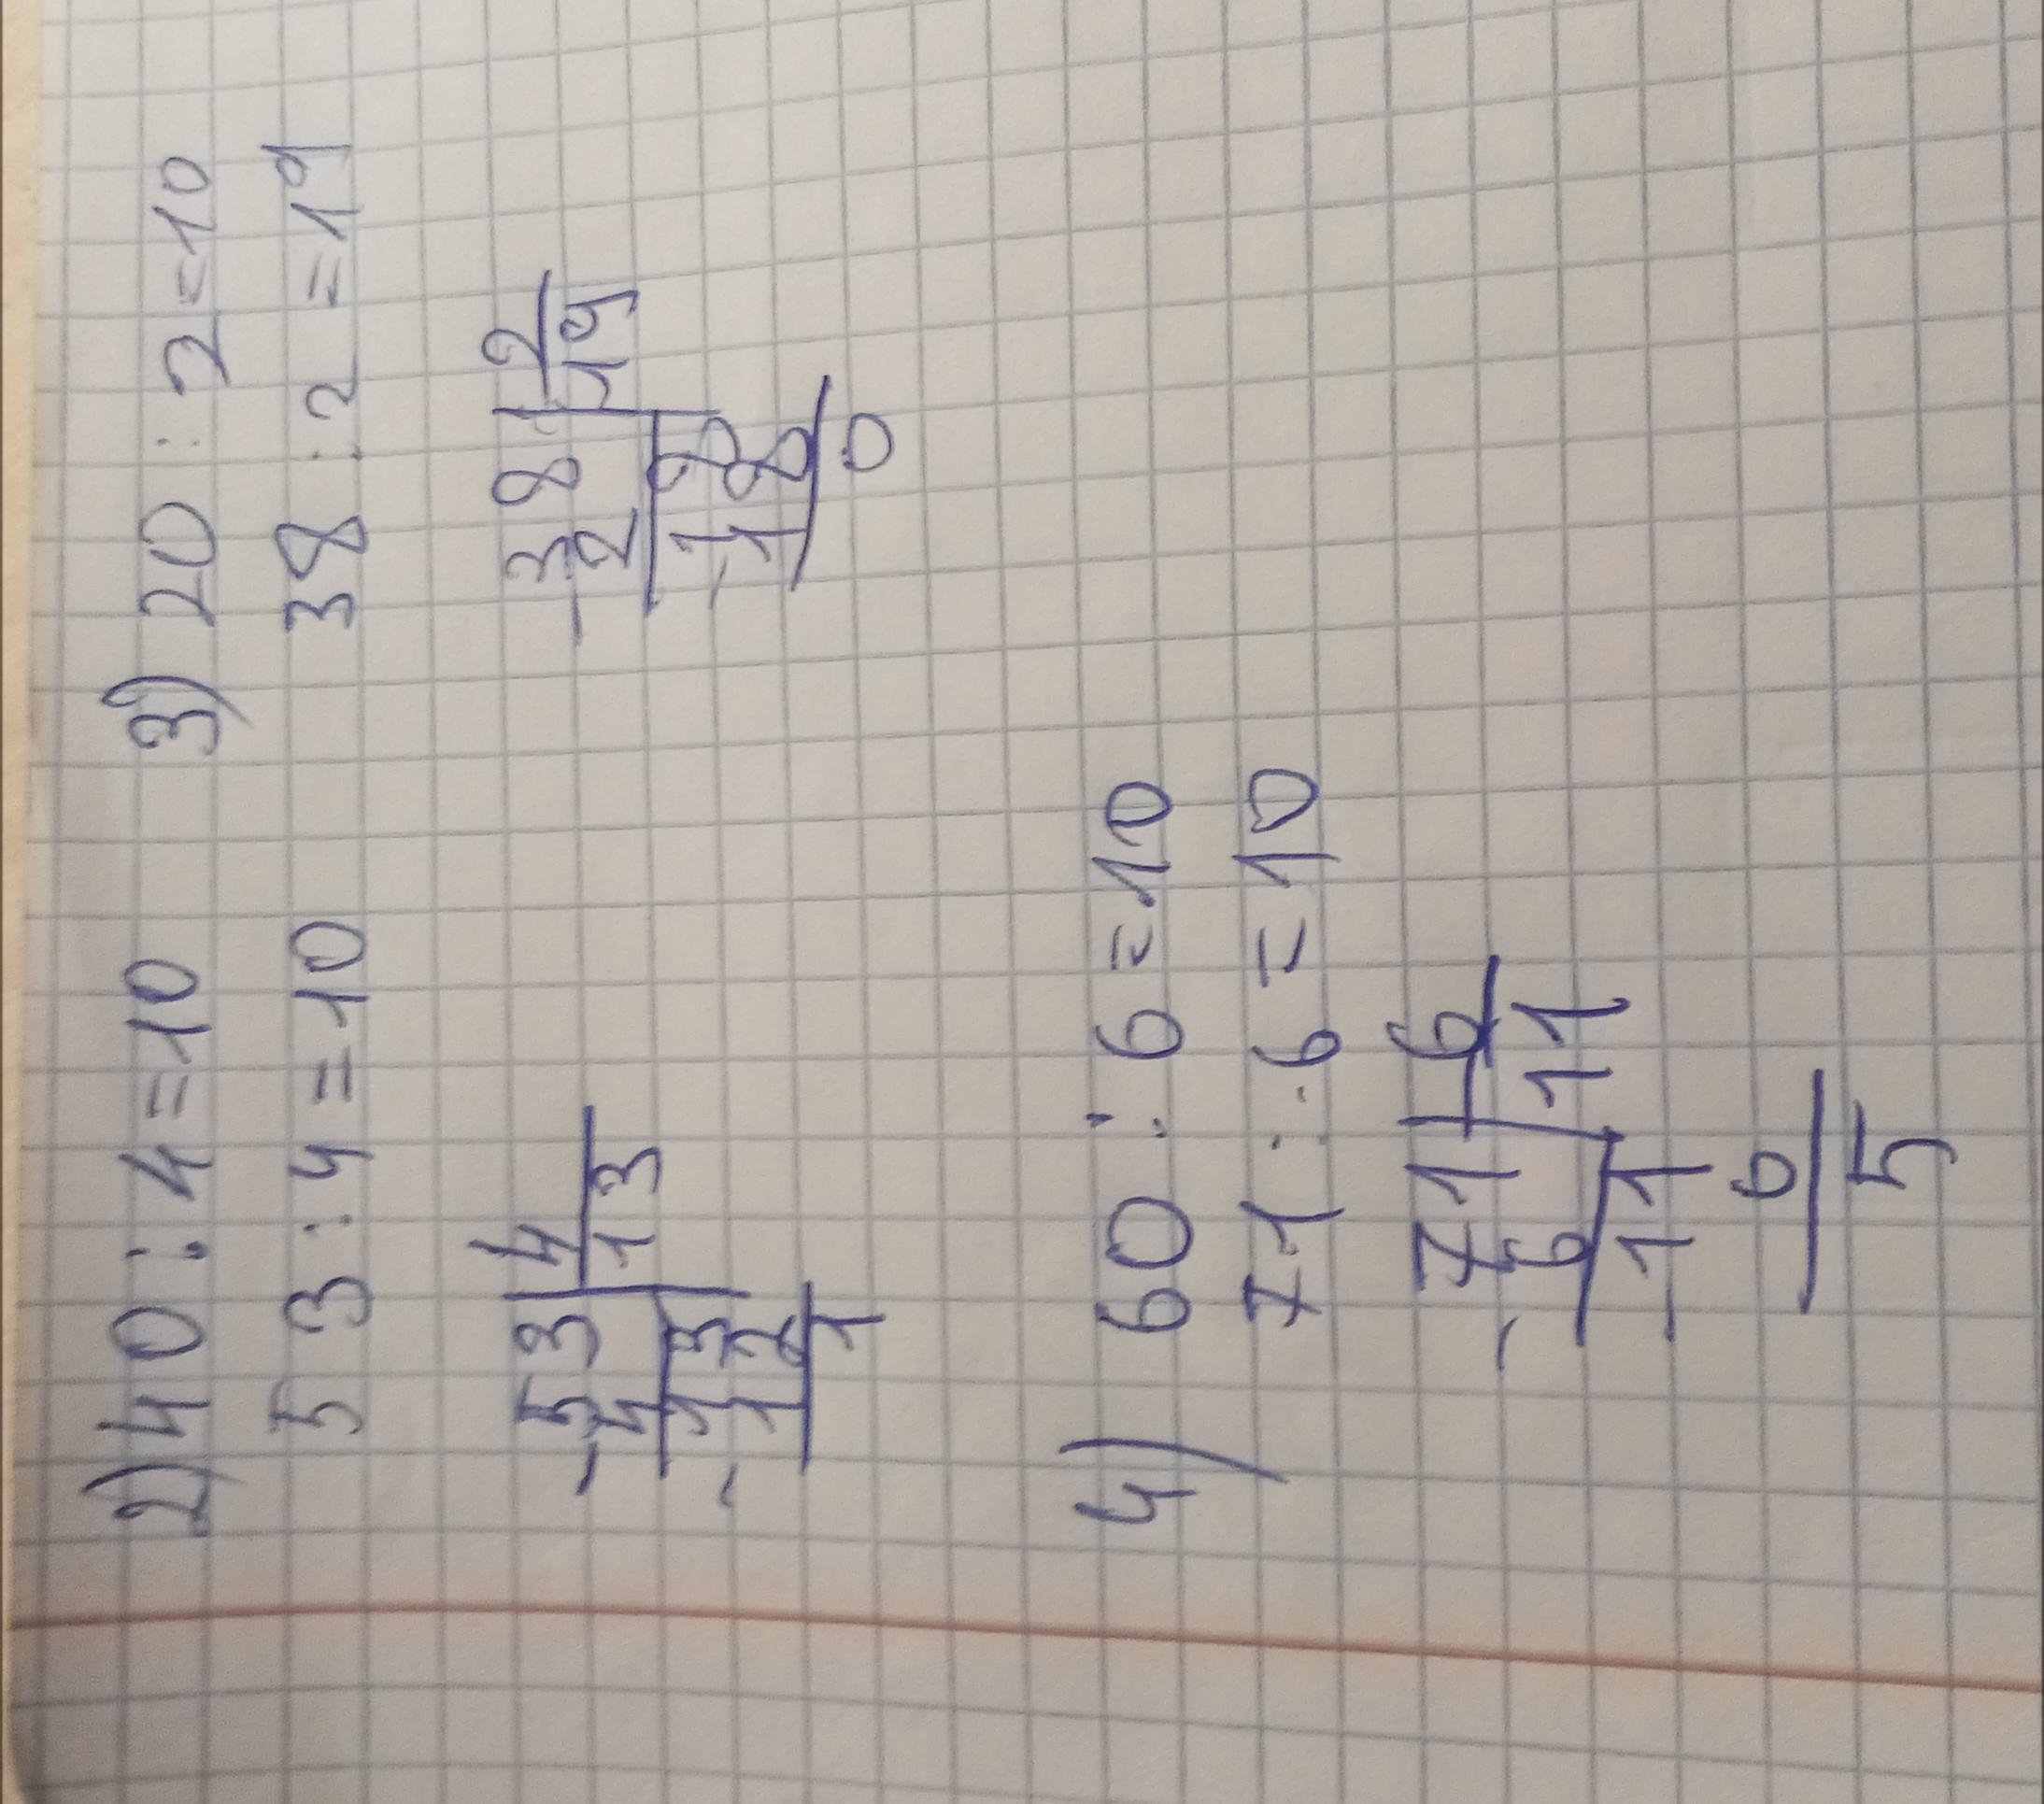 2) 40 : 4 = 10
53 : 4 = 10
-53 | 4
4 | 13
-13
12
1
3) 20 : 2 = 10
38 : 2 = 19
-38 | 2
2 | 19
-18
18
0
4) 60 : 6 = 10
71 : 6 = 10
-71 | 6
6 | 11
-11
6
5